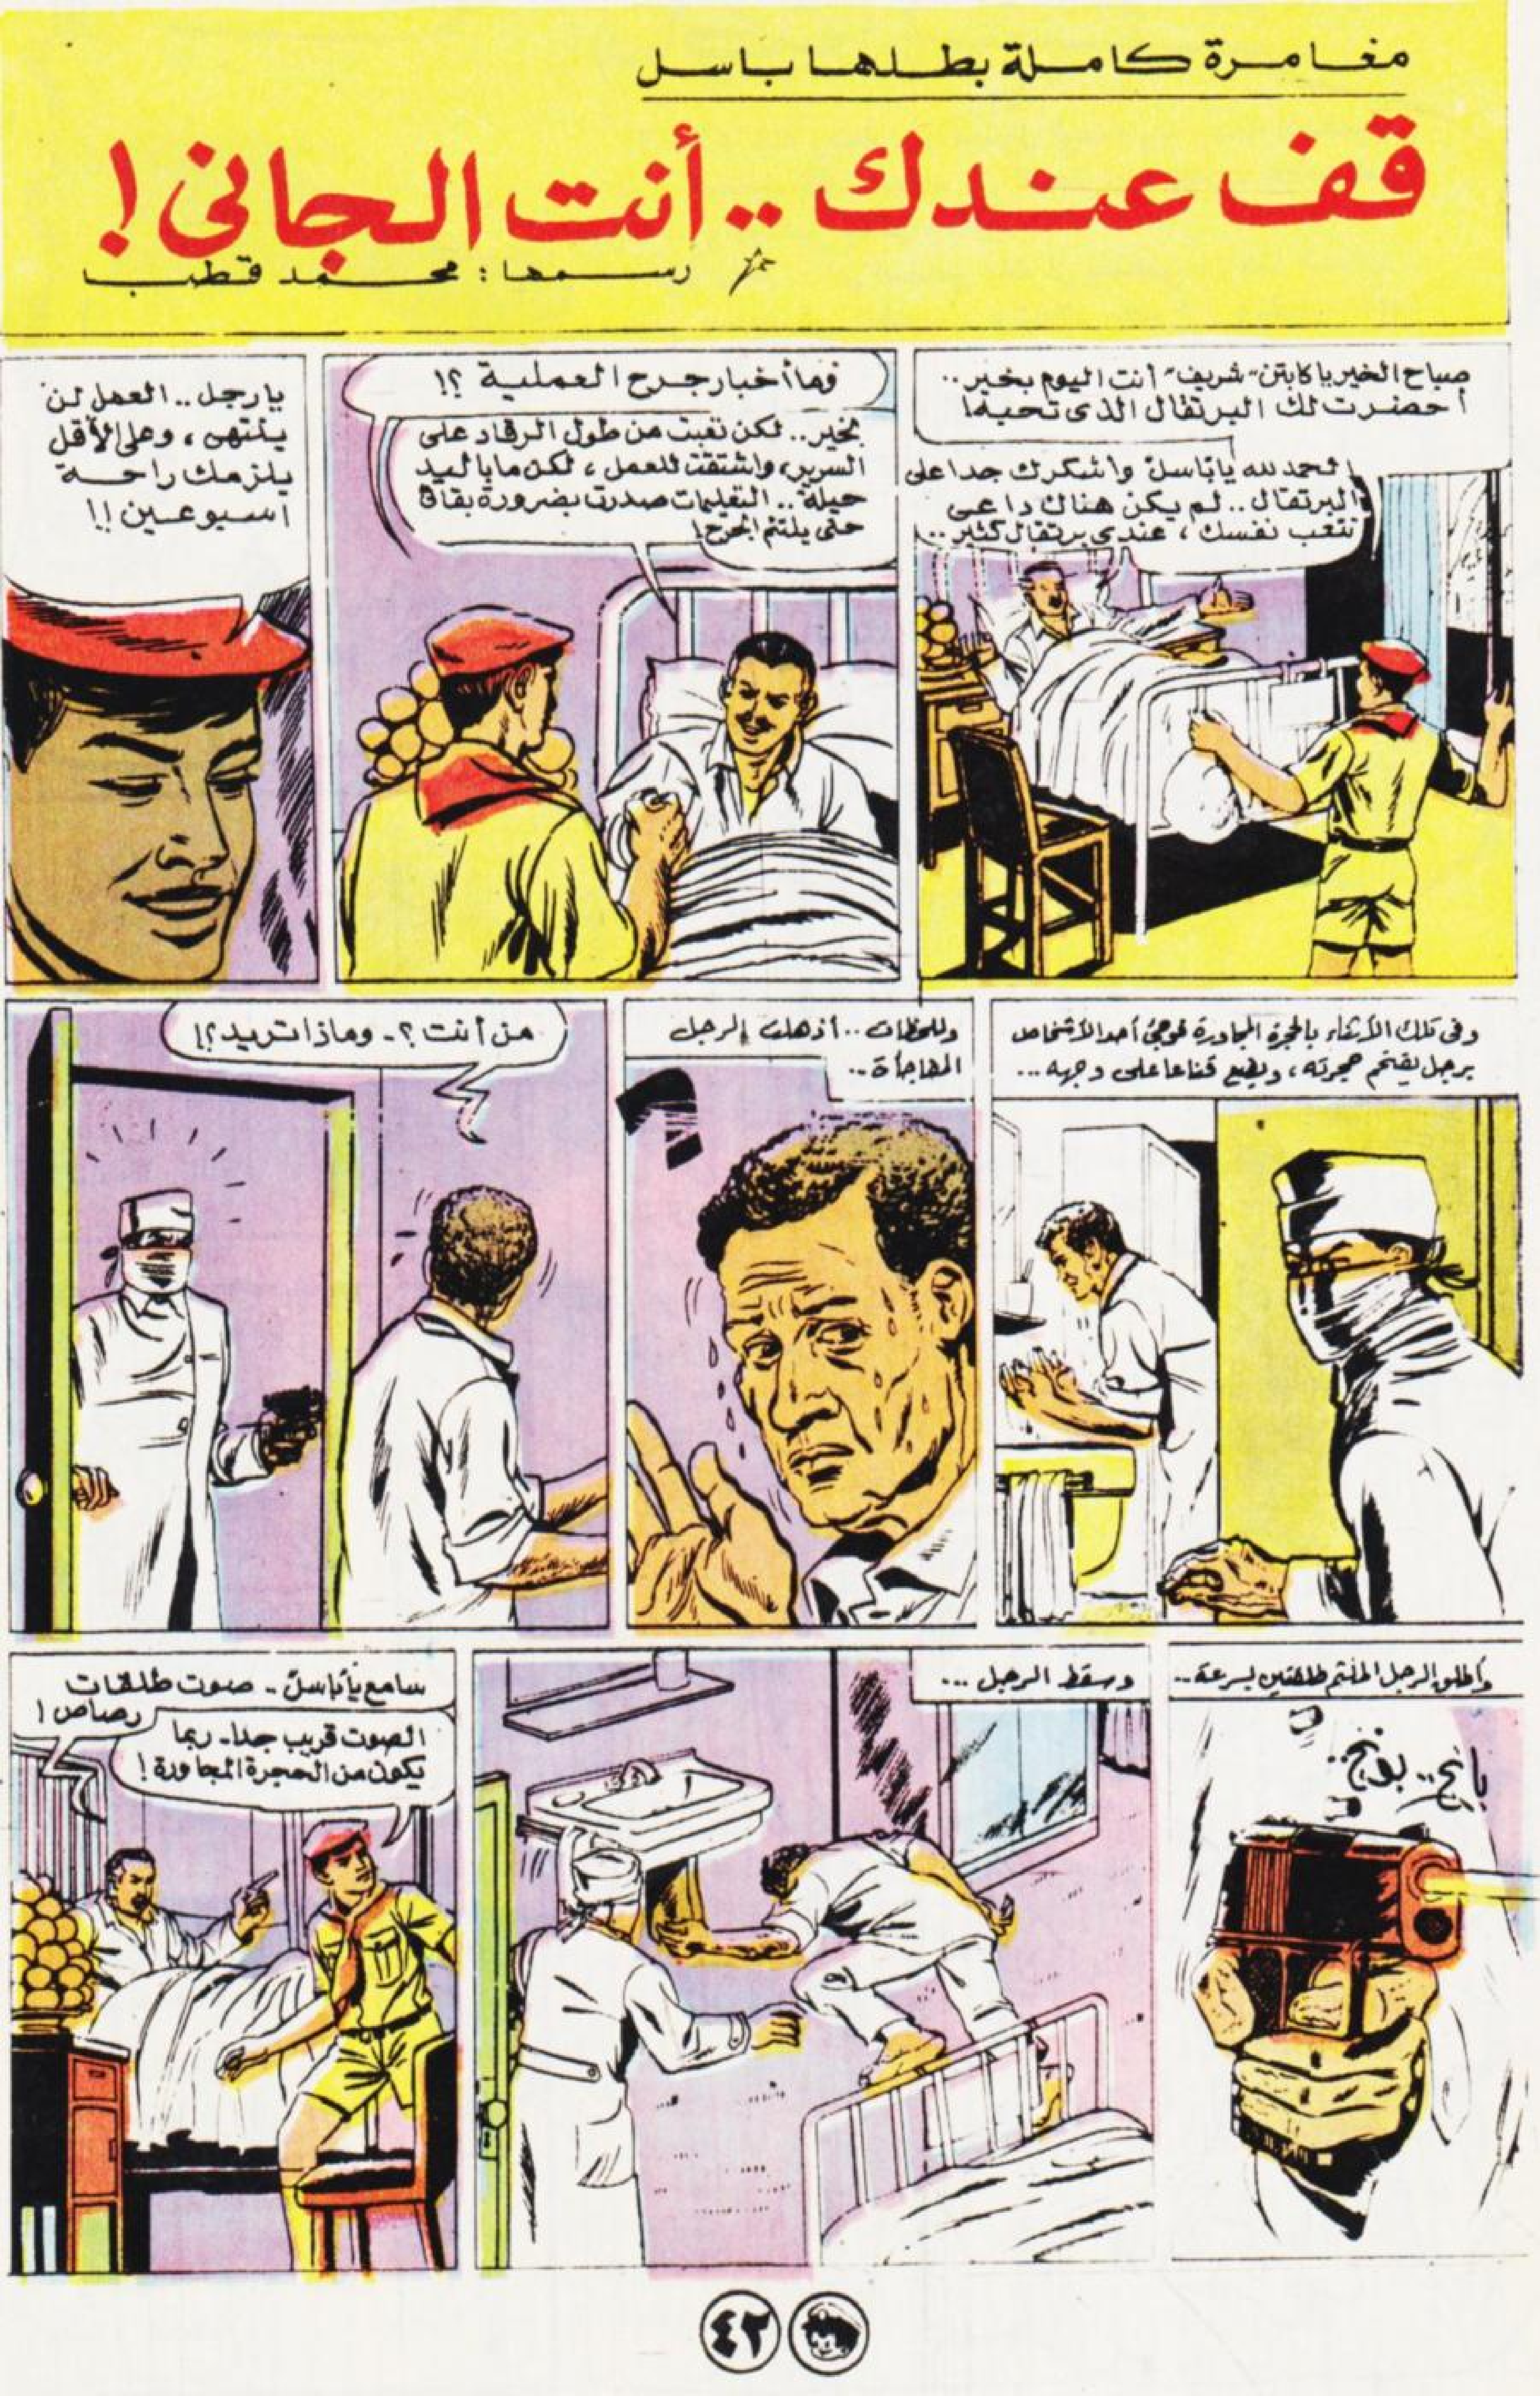 مغامرة كاملة بطلها باسل
قف عندك .. أنت الجاني !
رسمها : محمد قطب
صباح الخير يا كابتن "شريف" أنت اليوم بخير ..
أحضرت لك البرتقال الذى تحبه!
الحمد لله يا باسل وأشكرك جدا على
البرتقال .. لم يكن هناك داعى
تتعب نفسك ، عندى برتقال كثير ..
وما أخبار جرح العملية ؟!
بخير .. لكن تعبت من طول الرقاد على
السرير، واشتقت للعمل ، لكن ما باليد
حيلة .. التعليمات صدرت بضرورة بقائى
حتى يلتئم الجرح!
يا رجل .. العمل لن
ينتهى ، وعلى الأقل
يلزمك راحة
أسبوعين !!
وفى تلك الأثناء بالحجرة المجاورة فوجئ أحد الأشخاص
برجل يقتحم حجرته ، ويضع قناعا على وجهه ...
وللحظات .. أذهلت الرجل
المفاجأة ..
من أنت ؟ .. وماذا تريد ؟!
وأطلق الرجل الملثم طلقتين بسرعة ..
بانج .. بونج ..
وسقط الرجل ...
سامع يا باسل .. صوت طلقات
رصاص !
الصوت قريب جدا .. ربما
يكون من الحجرة المجاورة !
٤٢